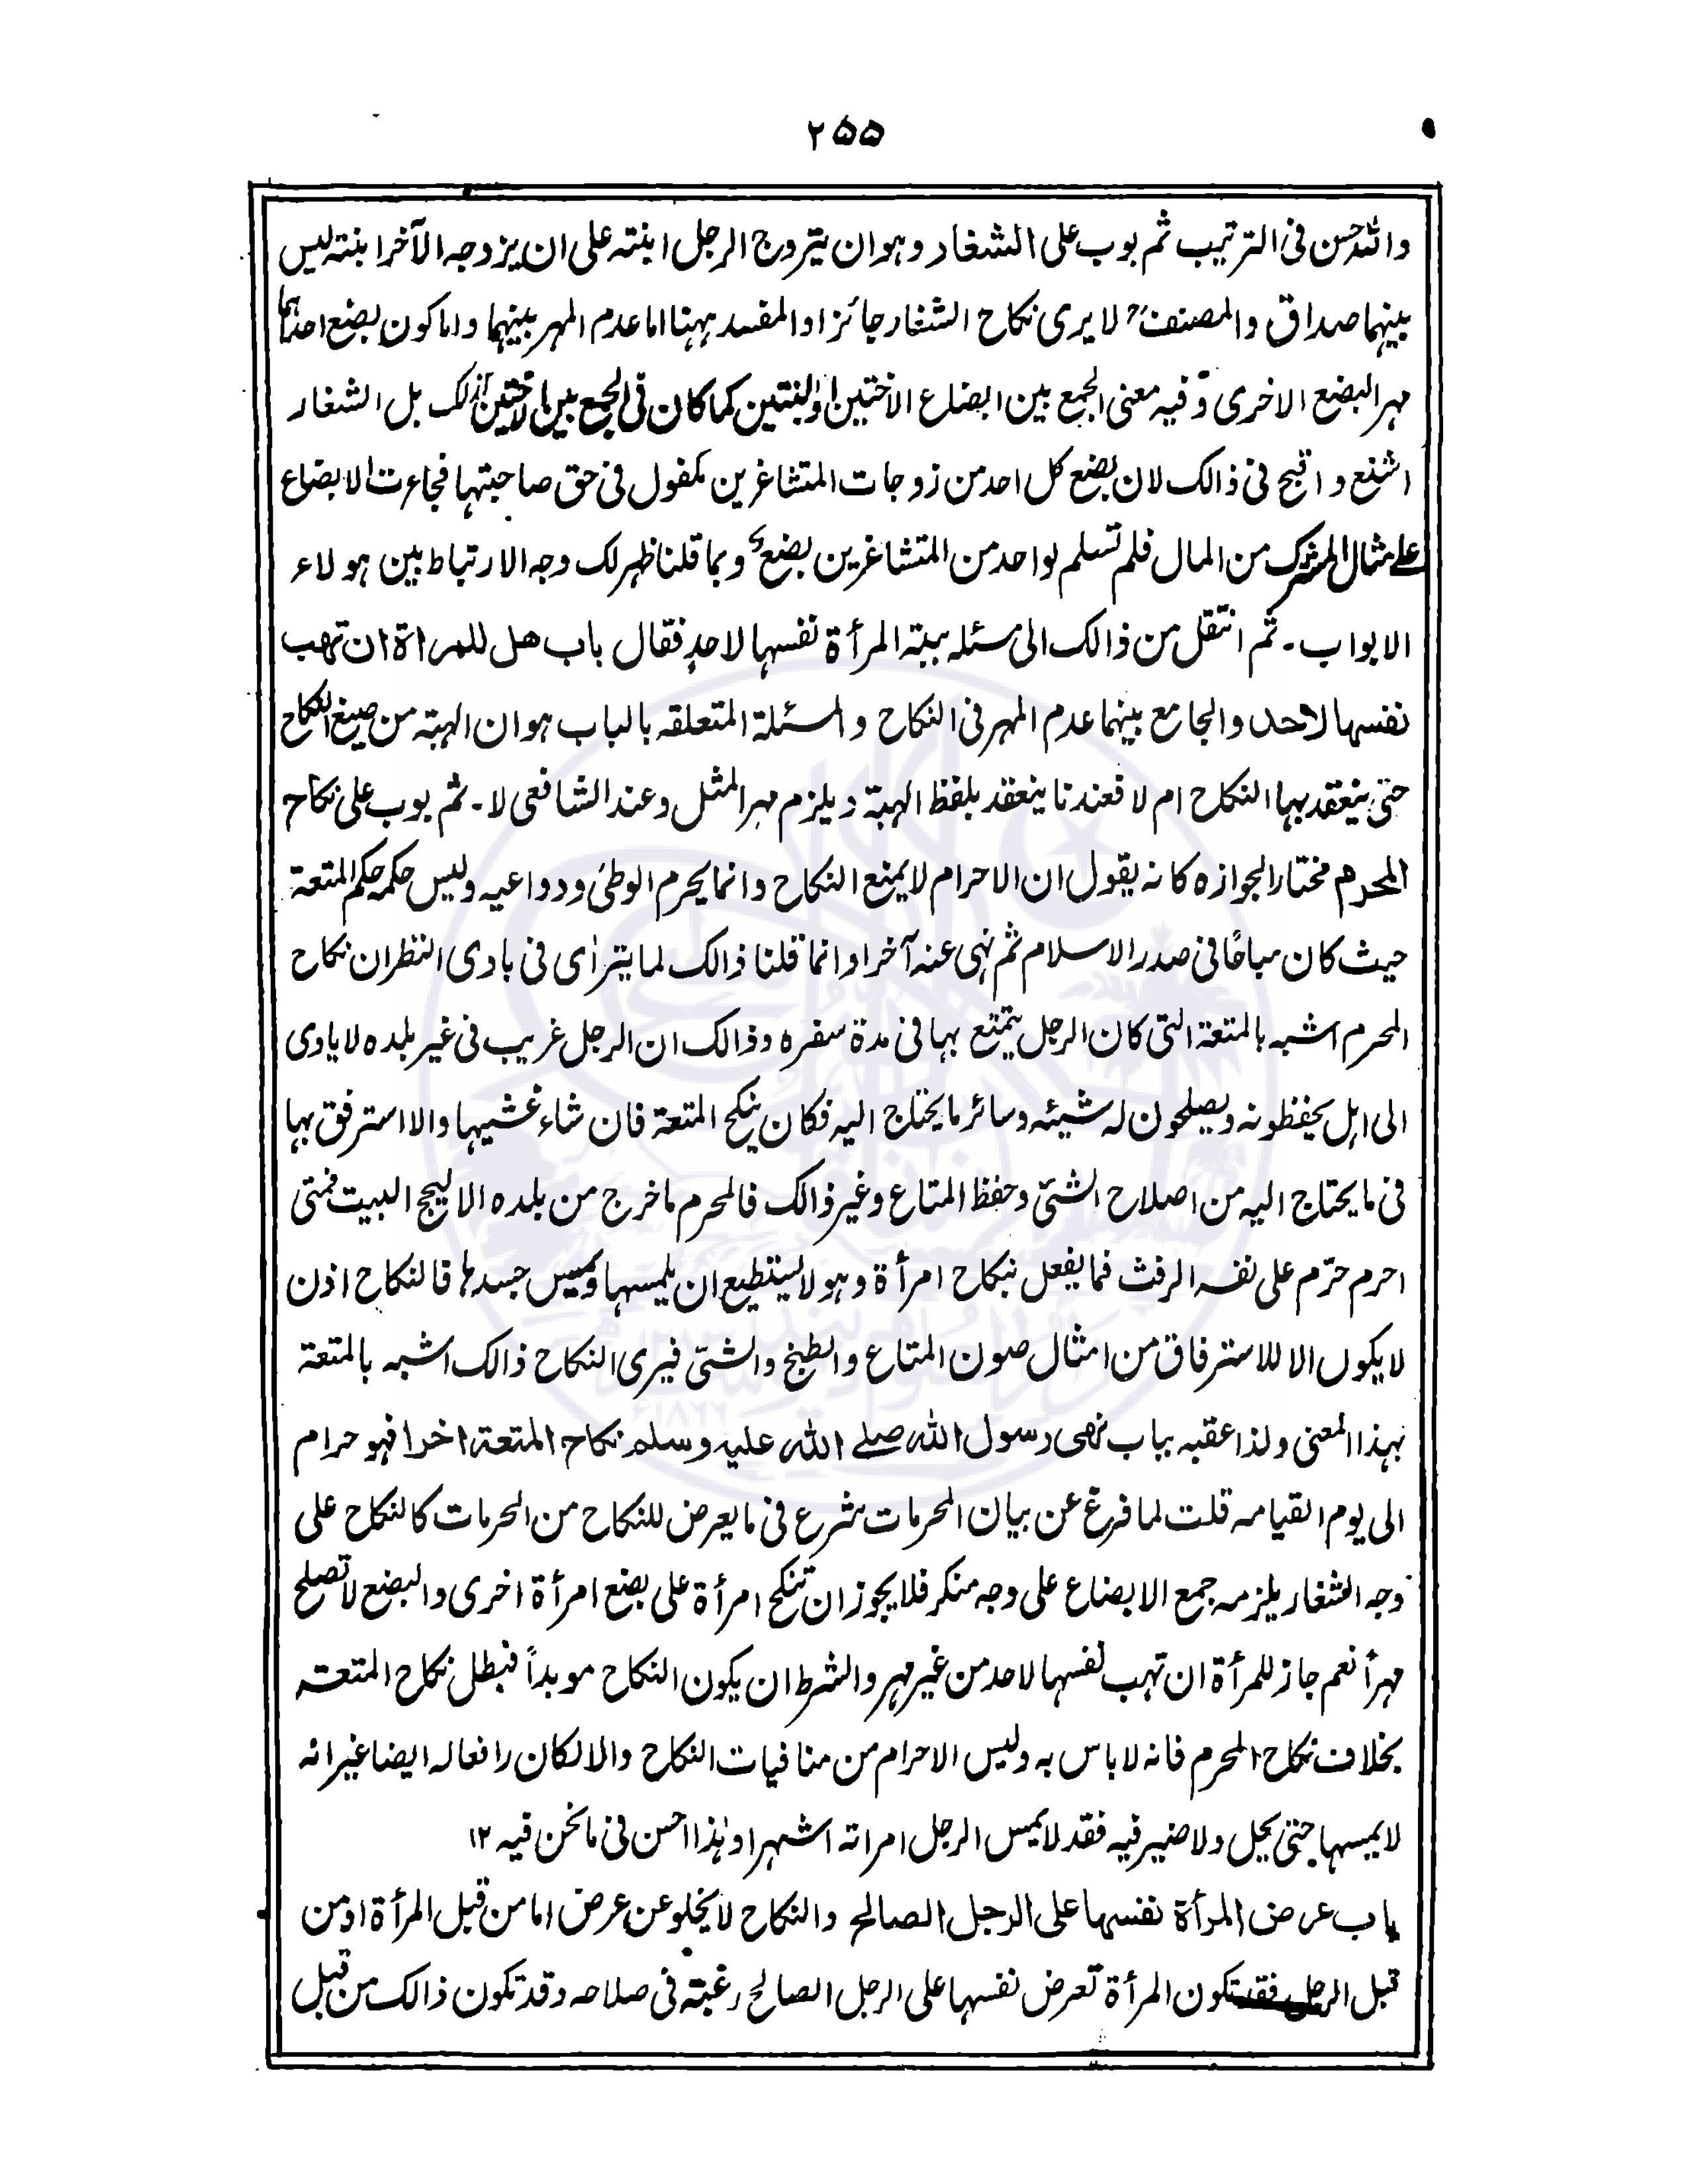 ۲۵۵
واللہ حسن فی الترتیب ثم بوب علی الشغار وہو ان یتزوج الرجل ابنتہ علی ان یزوجہ الآخر ابنتہ لیس
بینہما صداق والمصنفؒ لا یری نکاح الشغار جائزا والمفسد ہہنا اما عدم المہر بینہما واما کون بضع احداہما
مہر البضع الاخری وفیہ معنی الجمع بین ابضاع الاختین او البنتین کما کان فی الجمع بین الاختین کذلک بل الشغار
اشنع واقبح فی ذالک لان بضع کل احد من زوجات المتشاغرین مکفول فی حق صاحبتہا فجاءت الابضاع
علی مثال المشرک من المال فلم تسلم لواحد من المتشاغرین بضعۃ وبما قلنا ظہر لک وجہ الارتباط بین ہولاء
الابواب۔ ثم انتقل من ذالک الی مسئلہ ہبۃ المرأۃ نفسہا لاحدٍ فقال باب ھل للمراۃ ان تھب
نفسھا لاحد والجامع بینہما عدم المہر فی النکاح والمسئلۃ المتعلقہ بالباب ہو ان الہبۃ من صیغ النکاح
حتی ینعقد بہا النکاح ام لا فعندنا ینعقد بلفظ الہبۃ ویلزم مہر المثل وعند الشافعی لا۔ ثم بوب علی نکاح
المحرم مختارا لجوازہ کانہ یقول ان الاحرام لا یمنع النکاح وانما یحرم الوطئ ودواعیہ ولیس حکمہ حکم المتعۃ
حیث کان مباحًا فی صدر الاسلام ثم نہی عنہ آخرا وانما قلنا ذالک لما یترأی فی بادی النظر ان نکاح
المحرم اشبہ بالمتعۃ التی کان الرجل یتمتع بہا فی مدۃ سفرہ وذالک ان الرجل غریب فی غیر بلدہ لا یاوی
الی اہل یحفظونہ ویصلحون لہ شیئہ وسائر ما یحتاج الیہ فکان ینکح المتعۃ فان شاء غشیہا والا استرفق بہا
فی ما یحتاج الیہ من اصلاح الشئ وحفظ المتاع وغیر ذالک فالمحرم ما خرج من بلدہ الا لیحج البیت فمتی
احرم حرّم علی نفسہ الرفث فما یفعل بنکاح امرأۃ وہو لا یستطیع ان یلمسہا ویمس جسدہا فالنکاح اذن
لا یکون الا للاسترفاق من امثال صون المتاع والطبخ والشئ فیری النکاح ذالک اشبہ بالمتعۃ
بہذا المعنی ولذا عقبہ بباب نھی رسول اللہ صلے اللہ علیہ وسلم نکاح المتعۃ اخرا فہو حرام
الی یوم القیامہ قلت لما فرغ عن بیان المحرمات شرع فی ما یعرض للنکاح من الحرمات کالنکاح علی
وجہ الشغار یلزمہ جمع الابضاع علی وجہ منکر فلا یجوز ان تنکح امرأۃ علی بضع امرأۃ اخری والبضع لا تصلح
مہراً نعم جاز للمرأۃ ان تہب نفسہا لاحد من غیر مہر والشرط ان یکون النکاح موبداً فبطل نکاح المتعتہ
بخلاف نکاح المحرم فانہ لا باس بہ ولیس الاحرام من منافیات النکاح والا لکان رافعا لہ ایضا غیر انہ
لا یمسہا حتی یحل ولا ضیر فیہ فقد لا یمس الرجل امراتہ اشہرا وہٰذا احسن فی ما نحن فیہ ۱۲
باب عرض المرأۃ نفسھا علی الرجل الصالح والنکاح لا یخلو عن عرض اما من قبل المرأۃ او من
قبل الرجل فقد تکون المرأۃ تعرض نفسہا علی الرجل الصالح رغبتہ فی صلاحہ وقد تکون ذالک من قبل